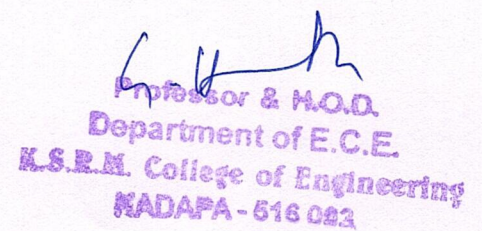 Professor & H.O.D.
Department of E.C.E.
K.S.R.M. College of Engineering
KADAPA - 516 003